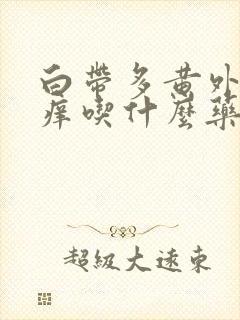 白帶多黃外
痒喫什麼藥
超級大遠東